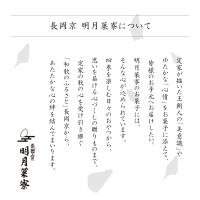 長岡京 明月菓寮について
定家が描いた王朝人の「美意識」や
ゆたかな「心情」をお菓子に添えて、
皆様のお手元へお届けしたい。
明月菓寮のお菓子には、
そんな心が込められています。
四季を楽しむ日々のおやつから、
思いを届ける心づくしの贈りものまで。
定家の歌の心を受け引き継ぐ
「和歌のふるさと」長岡京から、
あたたかな心の絆を結んでまいります。
長岡京
明月菓寮